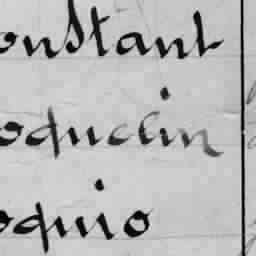 onstant
oquelin
oquio